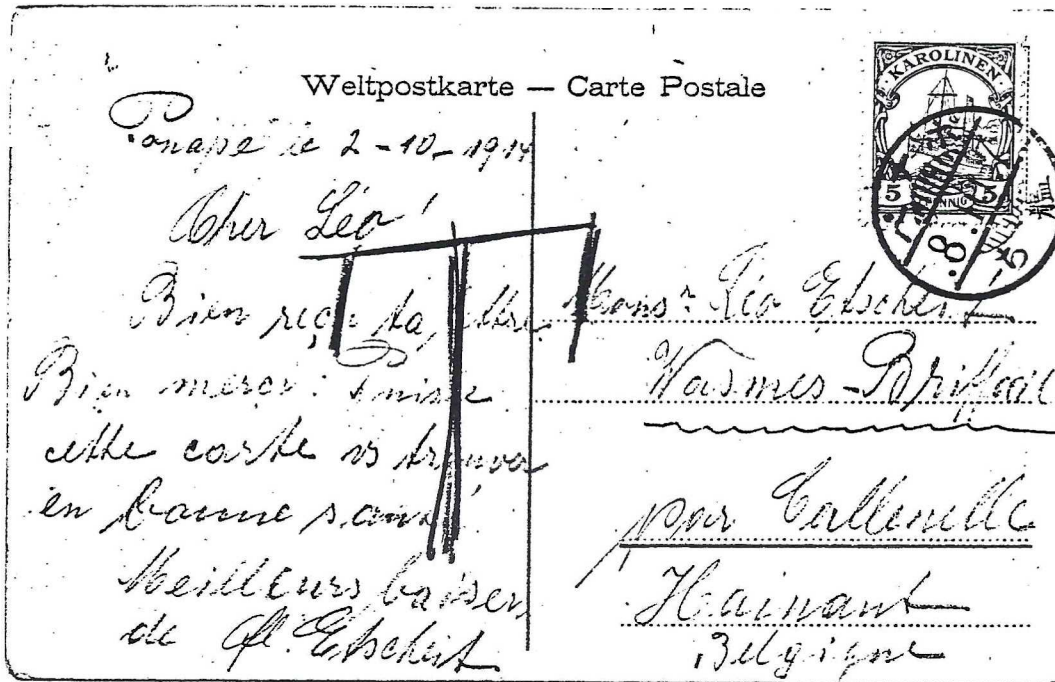 Weltpostkarte — Carte Postale
KAROLINEN
5 PFENNIG 5
Ponape le 2-10-1914
Cher Léo!
Bien reçu ta lettre
Bien merci. Puisse
cette carte vs trouver
en bonne santé
Meilleurs baisers
de Fl. Etscheit
T
Monsr. Léo Etscheit
Wasmes-Briffoeil
par Callenelle
Hainaut
Belgique